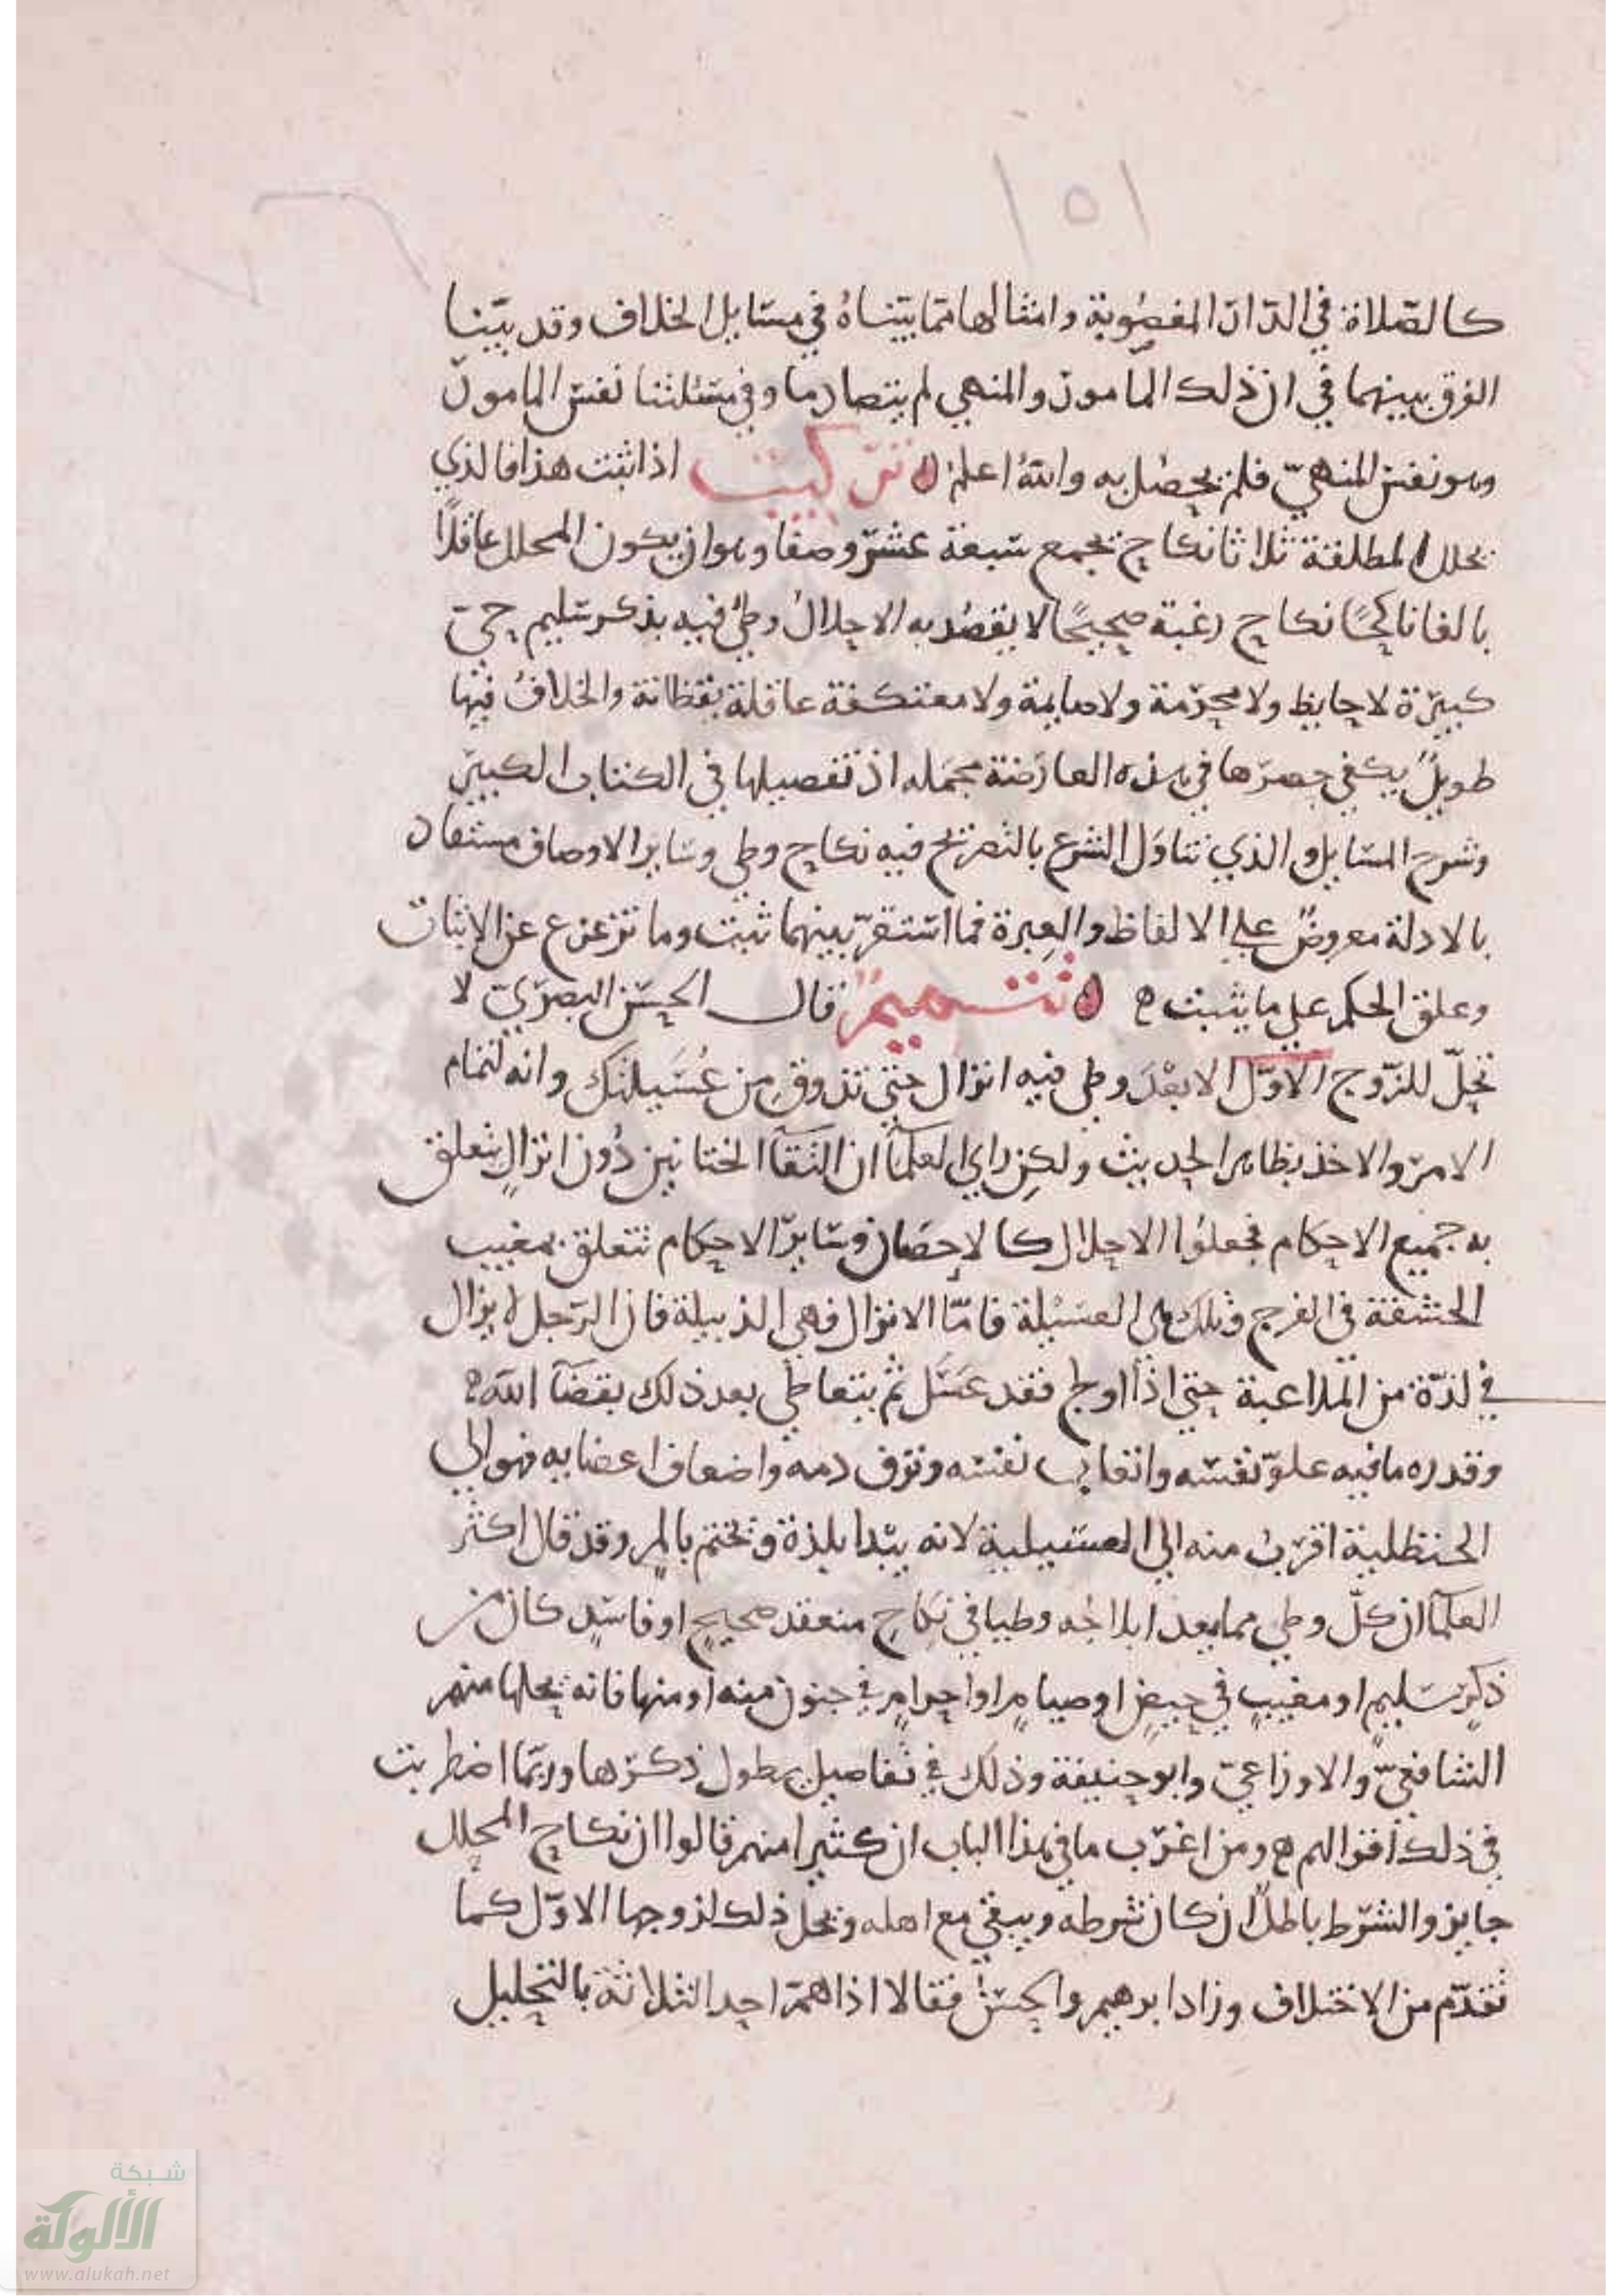 ١٥١
كالصّلاة في الدّار المغصُوبة وامثالها ممّا بيّناهُ في مسَايل الخلاف وقد بيّنا
الفرق بينهما في ان ذلك المأمور والمنهي لم يتصادما وفي مسئلتنا نفس المامور
وهو نفس المنهيّ فلم يحصُل به واللهُ اعلمُ تركيبٌ اذا ثبت هذا فالذي
يحلل المطلقة ثلاثا نكاح يجمع سَبعة عشرَ وصفا وهو ان يكون المحلل عاقلاً
بالغا ناكحًا نكاح رغبة صحيحًا لا يقصُد به الاحلالُ وطئ فيه بذكر سَليم حيّ
كبيرَة لا حايظ ولا محرّمة ولا صايمة ولا معتكفة عاقلة يقظانة والخلافُ فيها
طويلٌ يكفي حصرَها في هذه العارَضة مجمَله اذ تفصيلها في الكتاب الكبير
وشرح المسَايل والذي تناوَل الشرع بالتصريح فيه نكاح وطي وسَاير الاوصاف مستفاد
بالادلة معروضٌ علي الالفاظ والعِبرة فما استقرّ بينهما ثبت وما تزعزع عن الإثبات
وعلق الحكم علي ما يثبت ه تتميمٌ قال الحسَن البصرَيّ لا
تحِلّ للزّوج الاوّل الا بعْدَ وطي فيه انزال حتي تذوق من عُسَيلتك وانه لتمام
الامرَ والاخذ بظاهر الحديث ولكِن راي العلمآ ان التقآ الختانين دُون انزالٍ يتعلق
به جميع الاحكام فجعلوُا الاحلال كالإحصَان وسَايرَ الاحكام تتعلق بمغيب
الحشفة في الفرج وتلك هي العسَيْلة فامّا الانزال فهي الذبيلة فان الرّجل لا يزال
في لذّة من المُلاعبة حتي اذا اولج فقد عَسَّل ثم يتعاطي بعد ذلك بقضَآ الله ه
وقدره ما فيه علوّ نفسَه واتعاب نفسَه ونزف دمه واضعاف اعضايه فهو الي
الحنظلية اقربُ منه الي العسَيلية لانه يبْدا بلذة ويختم بالمٍ وقد قال اكثر
العلمآ ان كلّ وطي مما يعد ايلاجُه وطيا في نِكاحٍ منعقد صحيحٍ او فاسَدٍ كان من
ذكرٍ سَليمٍ او مغيبٍ في حيضٍ او صيامٍ او احرامٍ في جنون منه او منها فانه يحلها منهم
الشافعيّ والاوزاعيّ وابو حنيفة وذلك في تفاصيل يطول ذكرَها وربّما اضطربت
في ذلك اقوالهم ه ومن اغرَب ما في هذا الباب ان كثيرا منهم قالوا ان نكاح المحلل
جايز والشرَط باطلٌ ان كان شرطه ويبقي مع اهله ويحل ذلك لزوجها الاوّل كما
تقدّم من الاختلاف وزاد ابرهيم والحسَن فقالا اذا همّ احد الثلاثة بالتحليل
شبكة
الألوكة
www.alukah.net